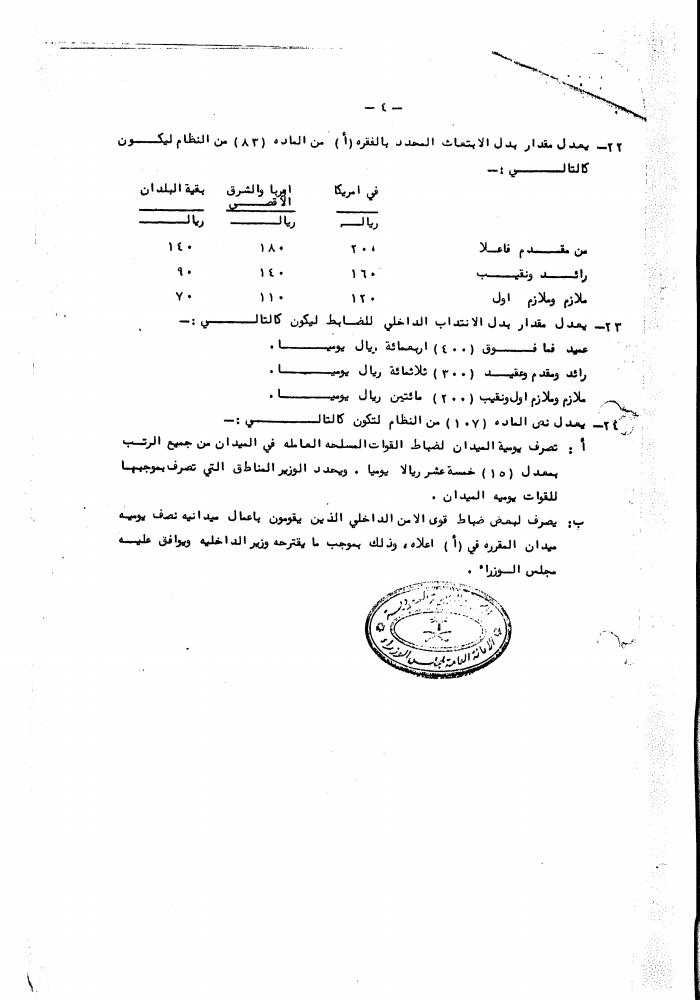 — ٤ —
٢٢— يعدل مقدار بدل الابتعاث المحدد بالفقره (أ) من الماده (٨٣) من النظام ليكـــــون
كالتالـــــــــي :—
في امريكا اوربا والشرق الاقصـــى بقية البلدان
ريالــــ ريالــــــــ ريالــــــــ
من مقــــدم فاعــلا ٢٠٠ ١٨٠ ١٤٠
رائــــد ونقيـــب ١٦٠ ١٤٠ ٩٠
ملازم وملازم اول ١٢٠ ١١٠ ٧٠
٢٣— يعدل مقدار بدل الانتداب الداخلي للضــابط ليكون كالتالـــــــــي :—
عميد فما فـــــوق (٤٠٠) اربعمائة ريال يوميـــــــا .
رائد ومقدم وعقيـــد (٣٠٠) ثلاثمائة ريال يوميـــــــا .
ملازم وملازم اول ونقيب (٢٠٠) مائتين ريال يوميـــــــا .
٢٤— يعدل نص الماده (١٠٧) من النظام لتكون كالتالـــــــــي :—
أ : تصرف يومية الميدان لضباط القوات المسلحه العامله في الميدان من جميع الرتـب
بمعدل (١٥) خمسة عشر ريالا يوميا . ويحدد الوزير المناطق التي تصرف بموجبهـا
للقوات يوميه الميدان .
ب: يصرف لبعض ضباط قوى الامن الداخلي الذين يقومون باعمال ميدانيه نصف يوميـه
ميدان المقرره في (أ) اعلاه، وذلك بموجب ما يقترحه وزير الداخليه ويوافق عليـــه
مجلس الــوزراء .
الامانة العامة لمجلس الوزراء